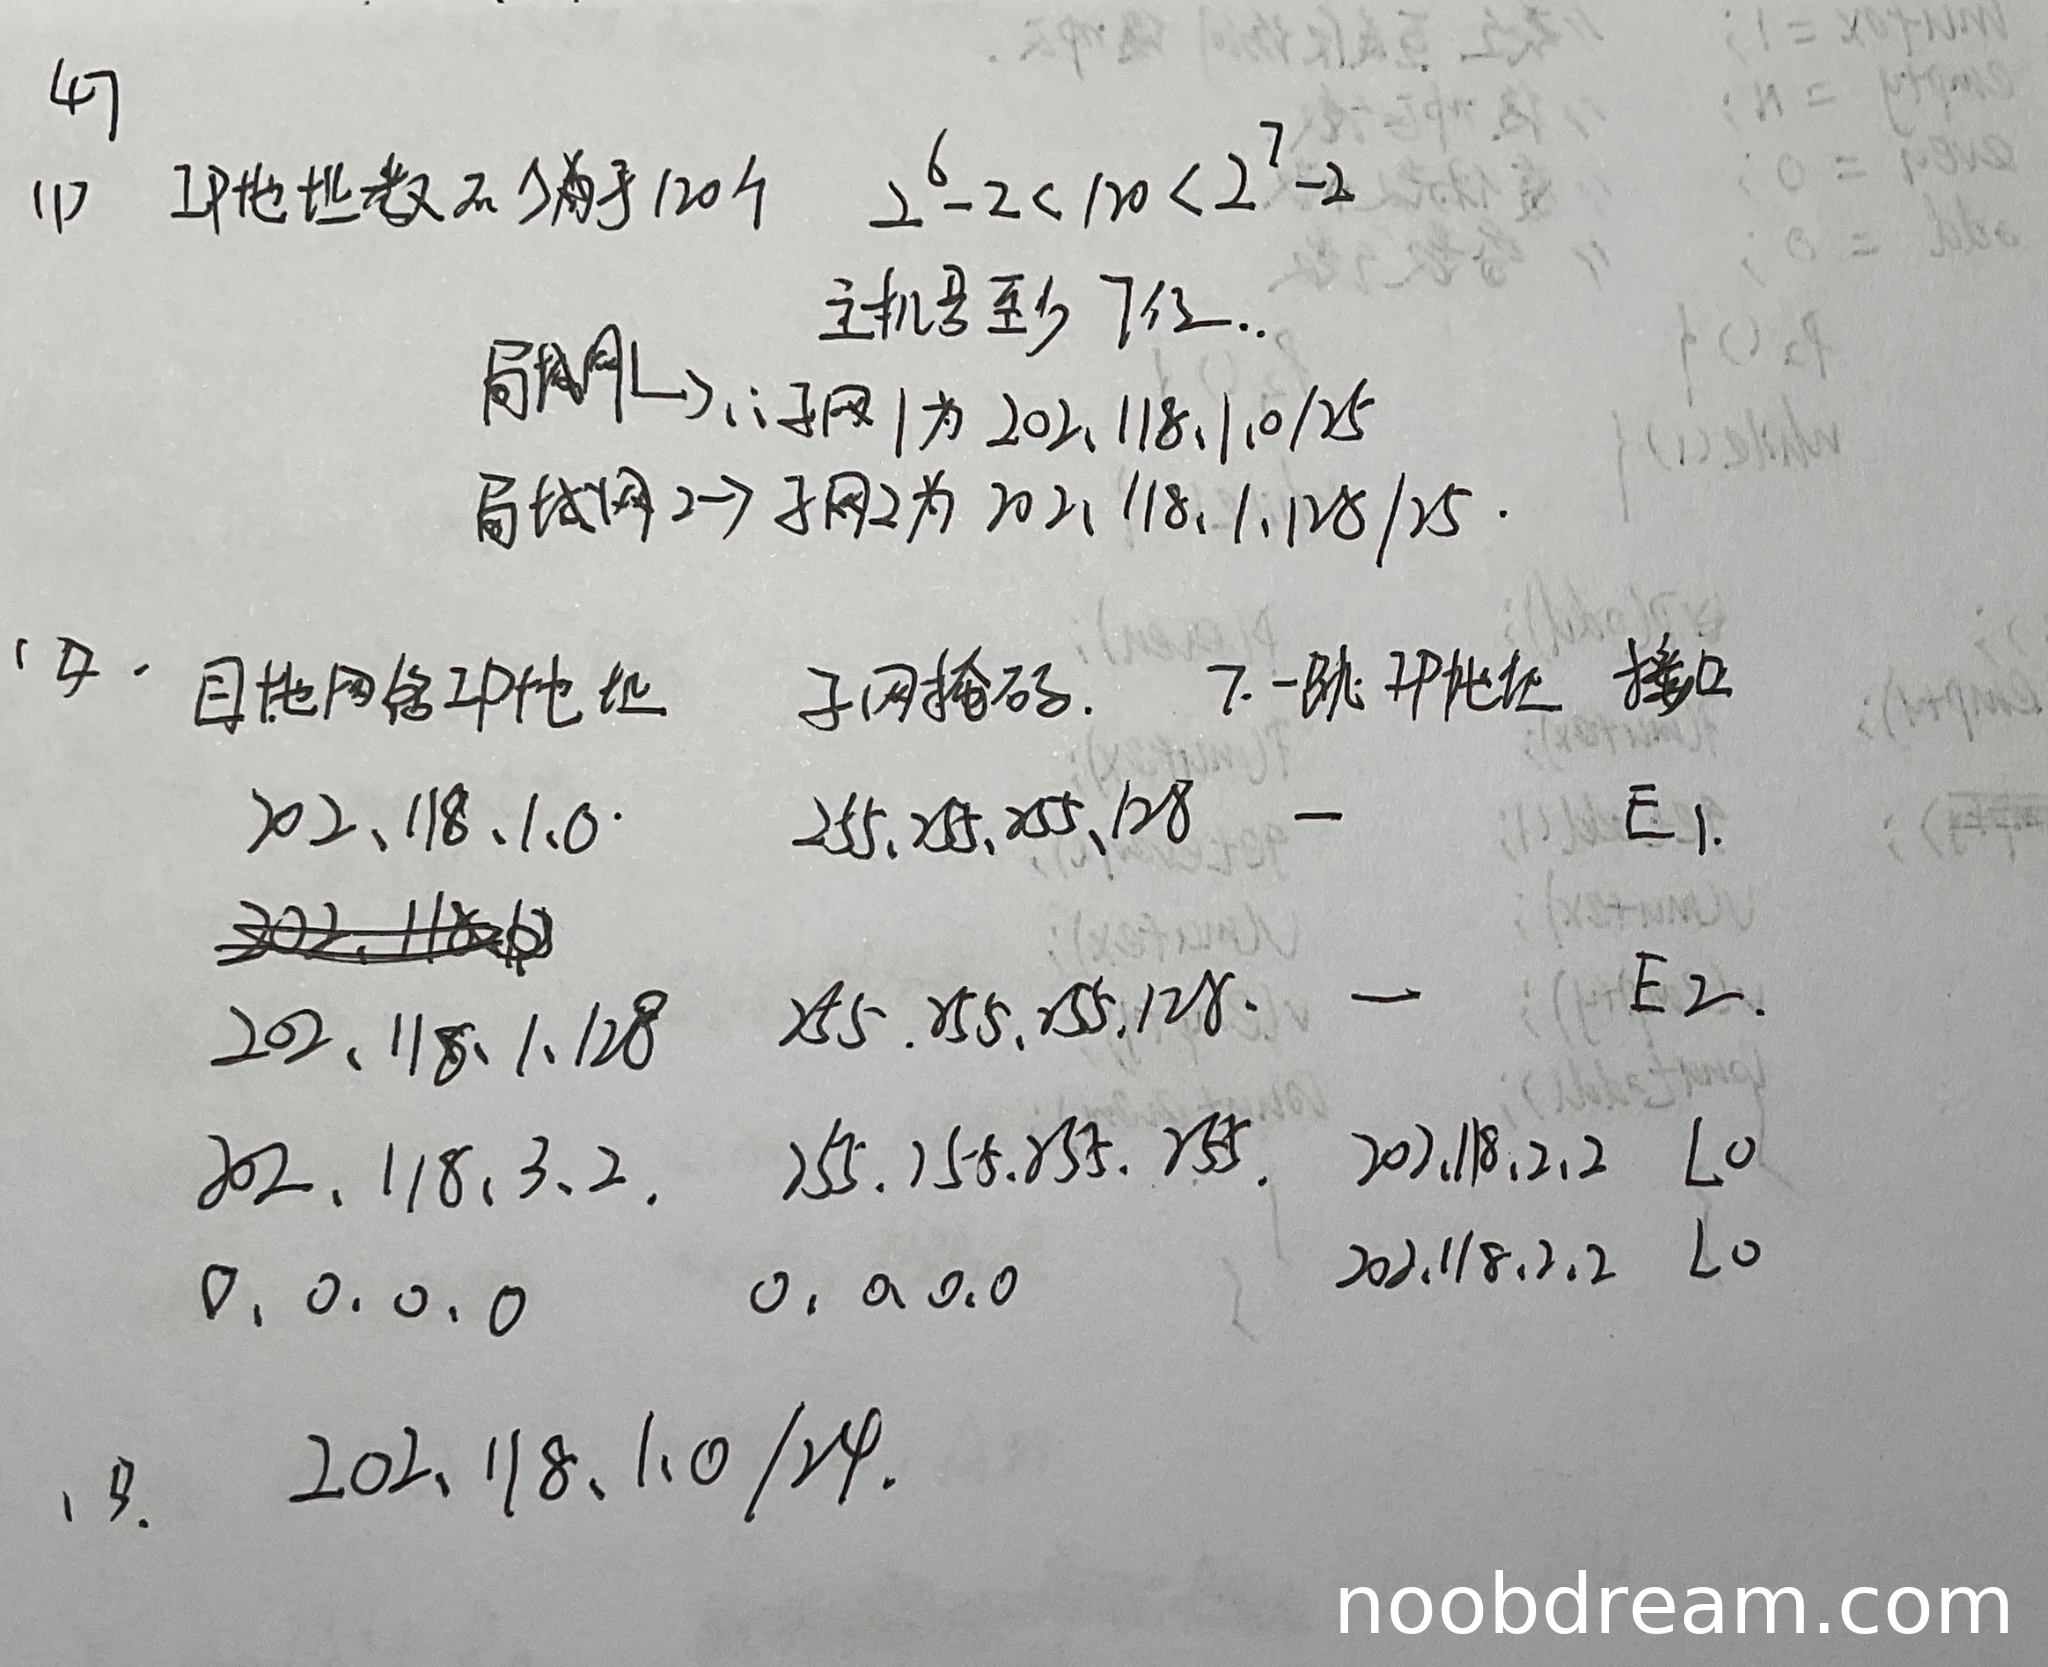 47
(1) IP地址数不少于120个 2^6-2<120<2^7-2
主机号至少7位..
局域网1→∴子网1为 202.118.1.0/25
局域网2→子网2为 202.118.1.128/25.
(2). 目地网络IP地址 子网掩码. 下一跳IP地址 接口
202.118.1.0. 255.255.255.128 — E1.
202.118.1.128 255.255.255.128. — E2.
202.118.3.2. 255.255.255.255. 202.118.2.2 L0
0.0.0.0 0.0.0.0 202.118.2.2 L0
(3). 202.118.1.0/24.
noobdream.com